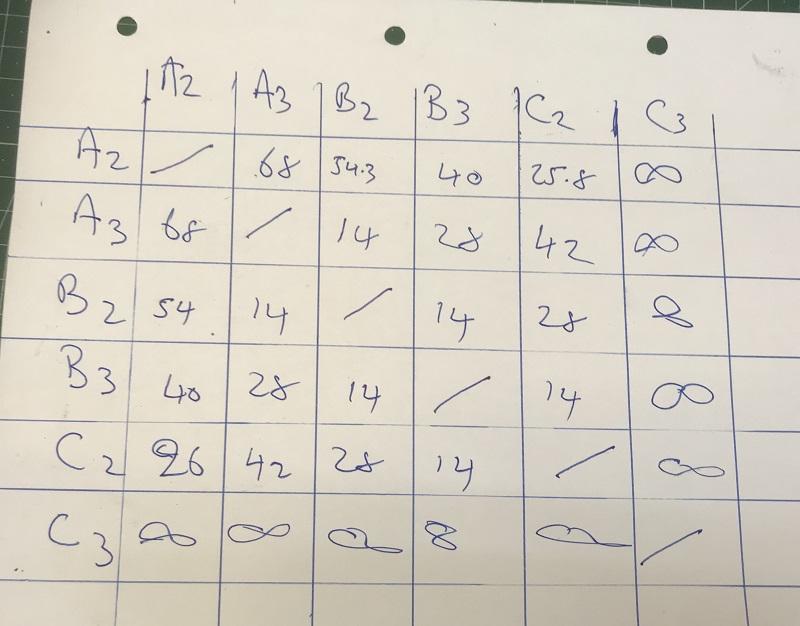 A2 A3 B2 B3 C2 C3
A2 / 68 54.3 40 25.8 ∞
A3 68 / 14 28 42 ∞
B2 54 14 / 14 28 8
B3 40 28 14 / 14 ∞
C2 26 42 28 14 / ∞
C3 ∞ ∞ ∞ 8 ∞ /